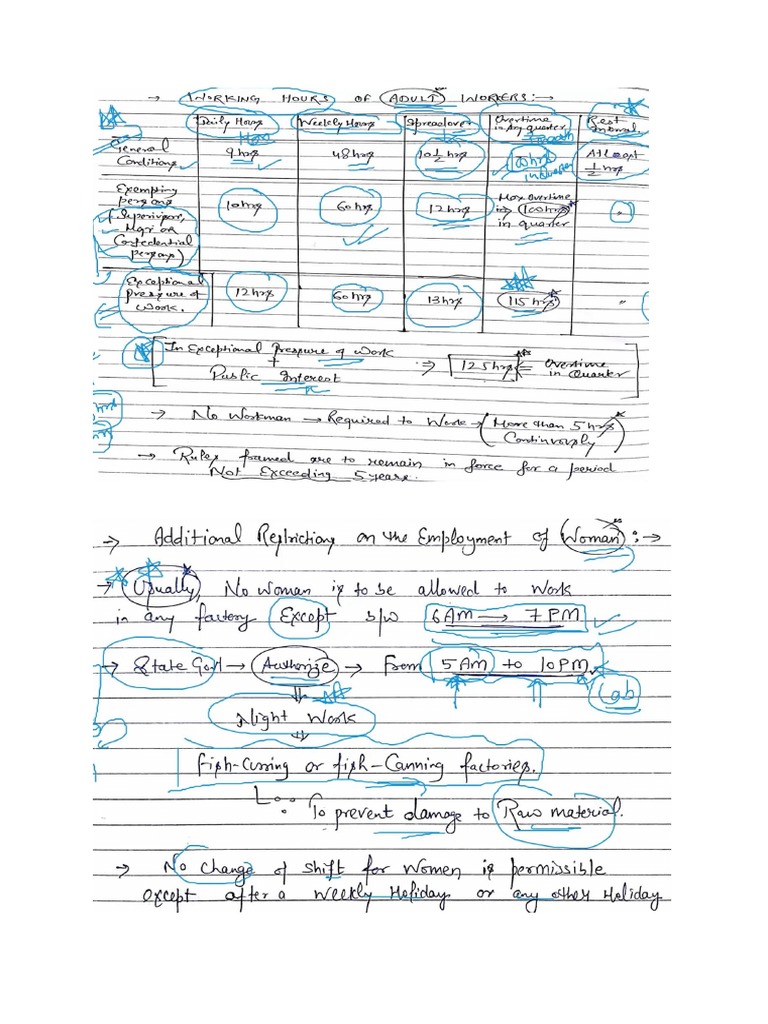 → WORKING HOURS OF ADULT WORKERS:→
Daily Hours Weekly Hours Spreadover Overtime in Any quarter Rest Interval
General Conditions 9 hrs 48 hrs 10½ hrs in quarter Atleast ½ hrs
Exempting persons (Supervisor, Mgr or Confedential persons) 10 hrs 60 hrs 12 hrs Max overtime is 100 hrs in quarter "
Exceptional pressure of work. 12 hrs 60 hrs 13 hrs 115 hrs "
In Exceptional Pressure of Work
+
Public Interest
⇒ 125 hrs = overtime in Quarter
→ No Workman → Required to Work → (More than 5 hrs Continuously)
→ Rules framed are to remain in force for a period
Not Exceeding 5 years.
→ Additional Restrictions on the Employment of Woman:→
→ Usually, No woman is to be allowed to work
in any factory Except b/w 6 AM → 7 PM
→ State Govt → Authorize → From 5 AM to 10 PM.
Cab
Night Work
Fish-Curring or fish-Canning factories.
To prevent damage to Raw material.
→ No change of shift for women is permissible
except after a weekly Holiday or any other Holiday